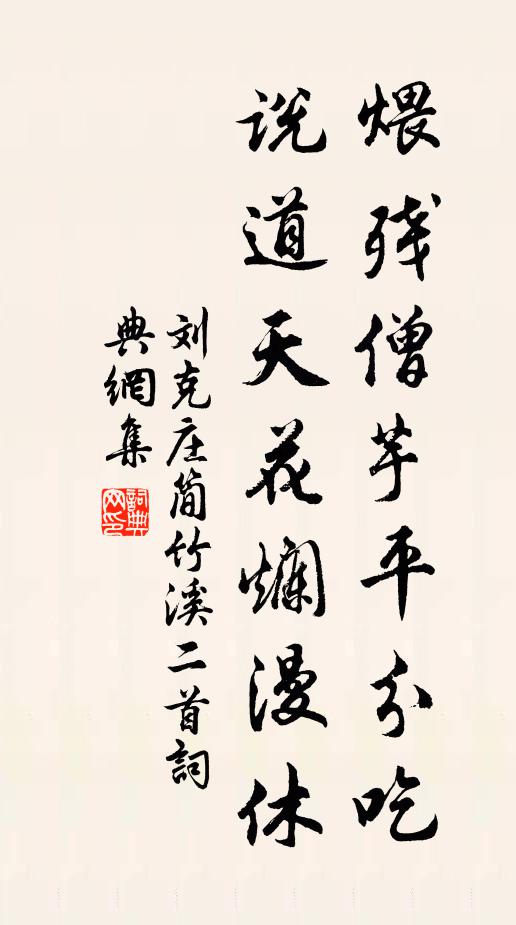 煨残僧芋平分吃
说道天花爛漫休
刘克庄简竹溪二首詞
典網集
詞典網印